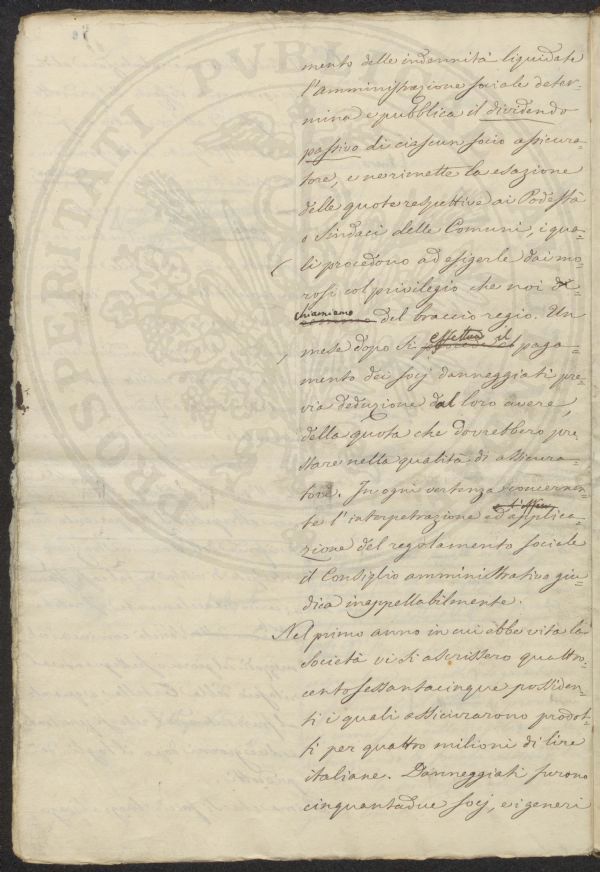 mento delle indennità liquidate
l'amministrazione sociale deter-
mina e pubblica il dividendo
passivo di ciascun socio assicura-
tore, e ne rimette la esazione
delle quote respettive ai Podestà
o Sindaci delle Comuni, i qua-
li procedono ad esigerle dai mo-
rosi col privilegio che noi
chiamiamo del braccio regio. Un
mese dopo si effettua il paga-
mento dei socj danneggiati pre-
via deduzione dal loro avere,
della quota che dovrebbero pre-
stare nella qualità di assicura-
tori. In ogni vertenza concernen-
te l'interpetrazione ed applica-
zione del regolamento sociale
il Consiglio amministrativo giu-
dica inappellabilmente.
Nel primo anno in cui ebbe vita la
Società vi si ascrissero quattro-
cento sessantacinque possiden-
ti i quali assicurarono prodot-
ti per quattro milioni di lire
italiane. Danneggiati furono
cinquantadue socj, e i generi